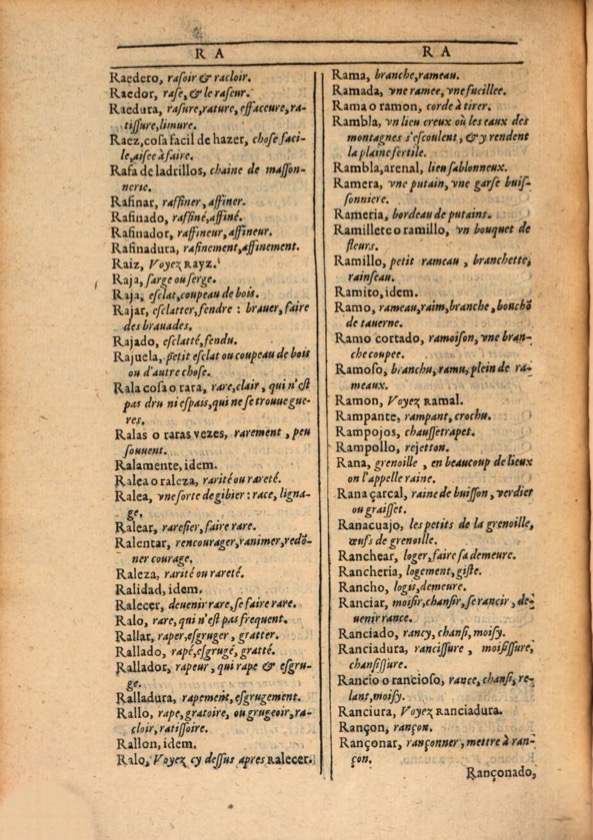 R A
Raedero, rasoir & racloir.
Raedor, rase, & le raseur.
Raedura, rasure, rature, effaceure, ra-
tissure, limure.
Raez, cosa facil de hazer, chose faci-
le, aisee à faire.
Rafa de ladrillos, chaine de masson-
nerie.
Rafinar, raffiner, affiner.
Rafinado, raffiné, affiné.
Rafinador, raffineur, affineur.
Rafinadura, rafinement, affinement.
Raiz, Voyez Rayz.
Raja, sarge ou serge.
Raja, esclat, coupeau de bois.
Rajar, esclatter, fendre : braver, faire
des brauades.
Rajado, esclatté, fendu.
Rajuela, petit esclat ou coupeau de bois
ou d'autre chose.
Rala cosa o rara, rare, clair, qui n'est
pas dru ni espais, qui ne se trouue gue-
res.
Ralas o raras vezes, rarement, peu
souuent.
Ralamente, idem.
Ralea o raleza, rarité ou rareté.
Ralea, vne sorte de gibier : race, ligna-
ge.
Ralear, rarefier, faire rare.
Ralentar, rencourager, ranimer, redō-
ner courage.
Raleza, rarité ou rareté.
Ralidad, idem.
Ralecer, deuenir rare, se faire rare.
Ralo, rare, qui n'est pas frequent.
Rallar, raper, esgruger, gratter.
Rallado, rapé, esgrugé, gratté.
Rallador, rapeur, qui rape & esgru-
ge.
Ralladura, rapement, esgrugement.
Rallo, rape, gratoire, ou grugeoir, ra-
cloir, ratissoire.
Rallon, idem.
Ralo, Voyez cy dessus apres Ralecer.
R A
Rama, branche, rameau.
Ramada, vne ramee, vne fueillee.
Rama o ramon, corde à tirer.
Rambla, vn lieu creux où les eaux des
montagnes s'escoulent, & y rendent
la plaine fertile.
Rambla, arenal, lieu sablonneux.
Ramera, vne putain, vne garse buis-
sonniere.
Rameria, bordeau de putains.
Ramillete o ramillo, vn bouquet de
fleurs.
Ramillo, petit rameau, branchette,
rainseau.
Ramito, idem.
Ramo, rameau, raim, branche, bouchō
de tauerne.
Ramo cortado, ramoison, vne bran-
che coupee.
Ramoso, branchu, ramu, plein de ra-
meaux.
Ramon, Voyez Ramal.
Rampante, rampant, crochu.
Rampojos, chaussetrapet.
Rampollo, rejetton.
Rana, grenoille, en beaucoup de lieux
on l'appelle raine.
Rana çarcal, raine de buisson, verdier
ou graisset.
Ranacuajo, les petits de la grenoille,
œufs de grenoille.
Ranchear, loger, faire sa demeure.
Rancheria, logement, giste.
Rancho, logis, demeure.
Ranciar, moisir, chansir, se rancir, de-
uenir rance.
Ranciado, rancy, chansi, moisy.
Ranciadura, rancissure, moisissure,
chansissure.
Rancio o rancioso, rance, chansi, re-
lant, moisy.
Ranciura, Voyez Ranciadura.
Rançon, rançon.
Rançonar, rançonner, mettre à ran-
çon.
Rançonado,